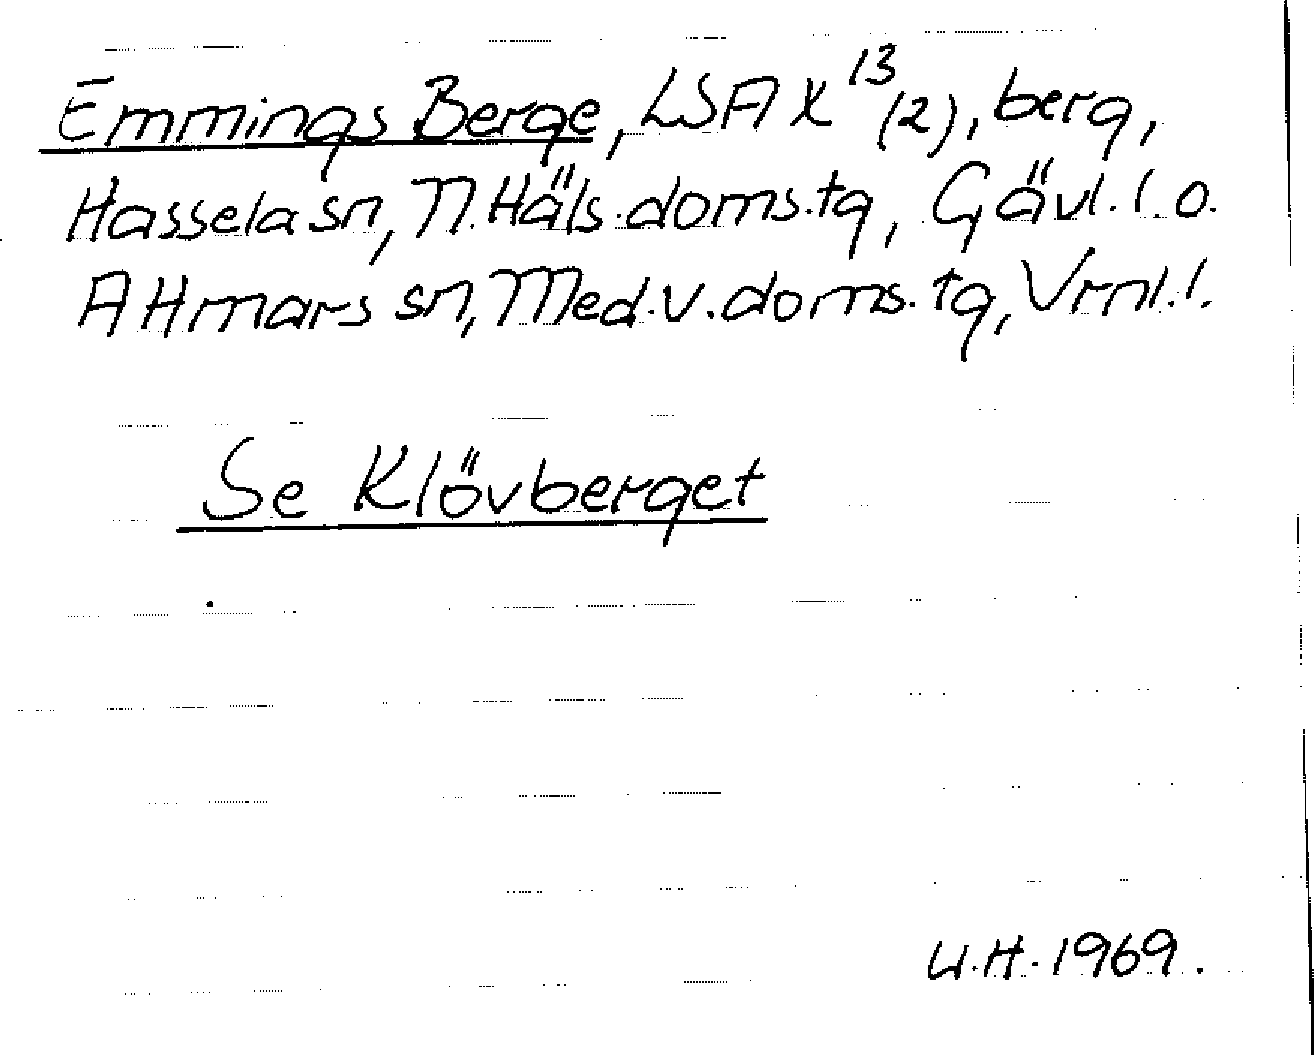 Emmings Berge, LSA X 13 (2), berg,
Hassela sn, N. Häls. doms.tg, Gävl. l. o.
Attmars sn, Med. v. doms. tg, Vrnl. l.
Se Klövberget
U.H. 1969.